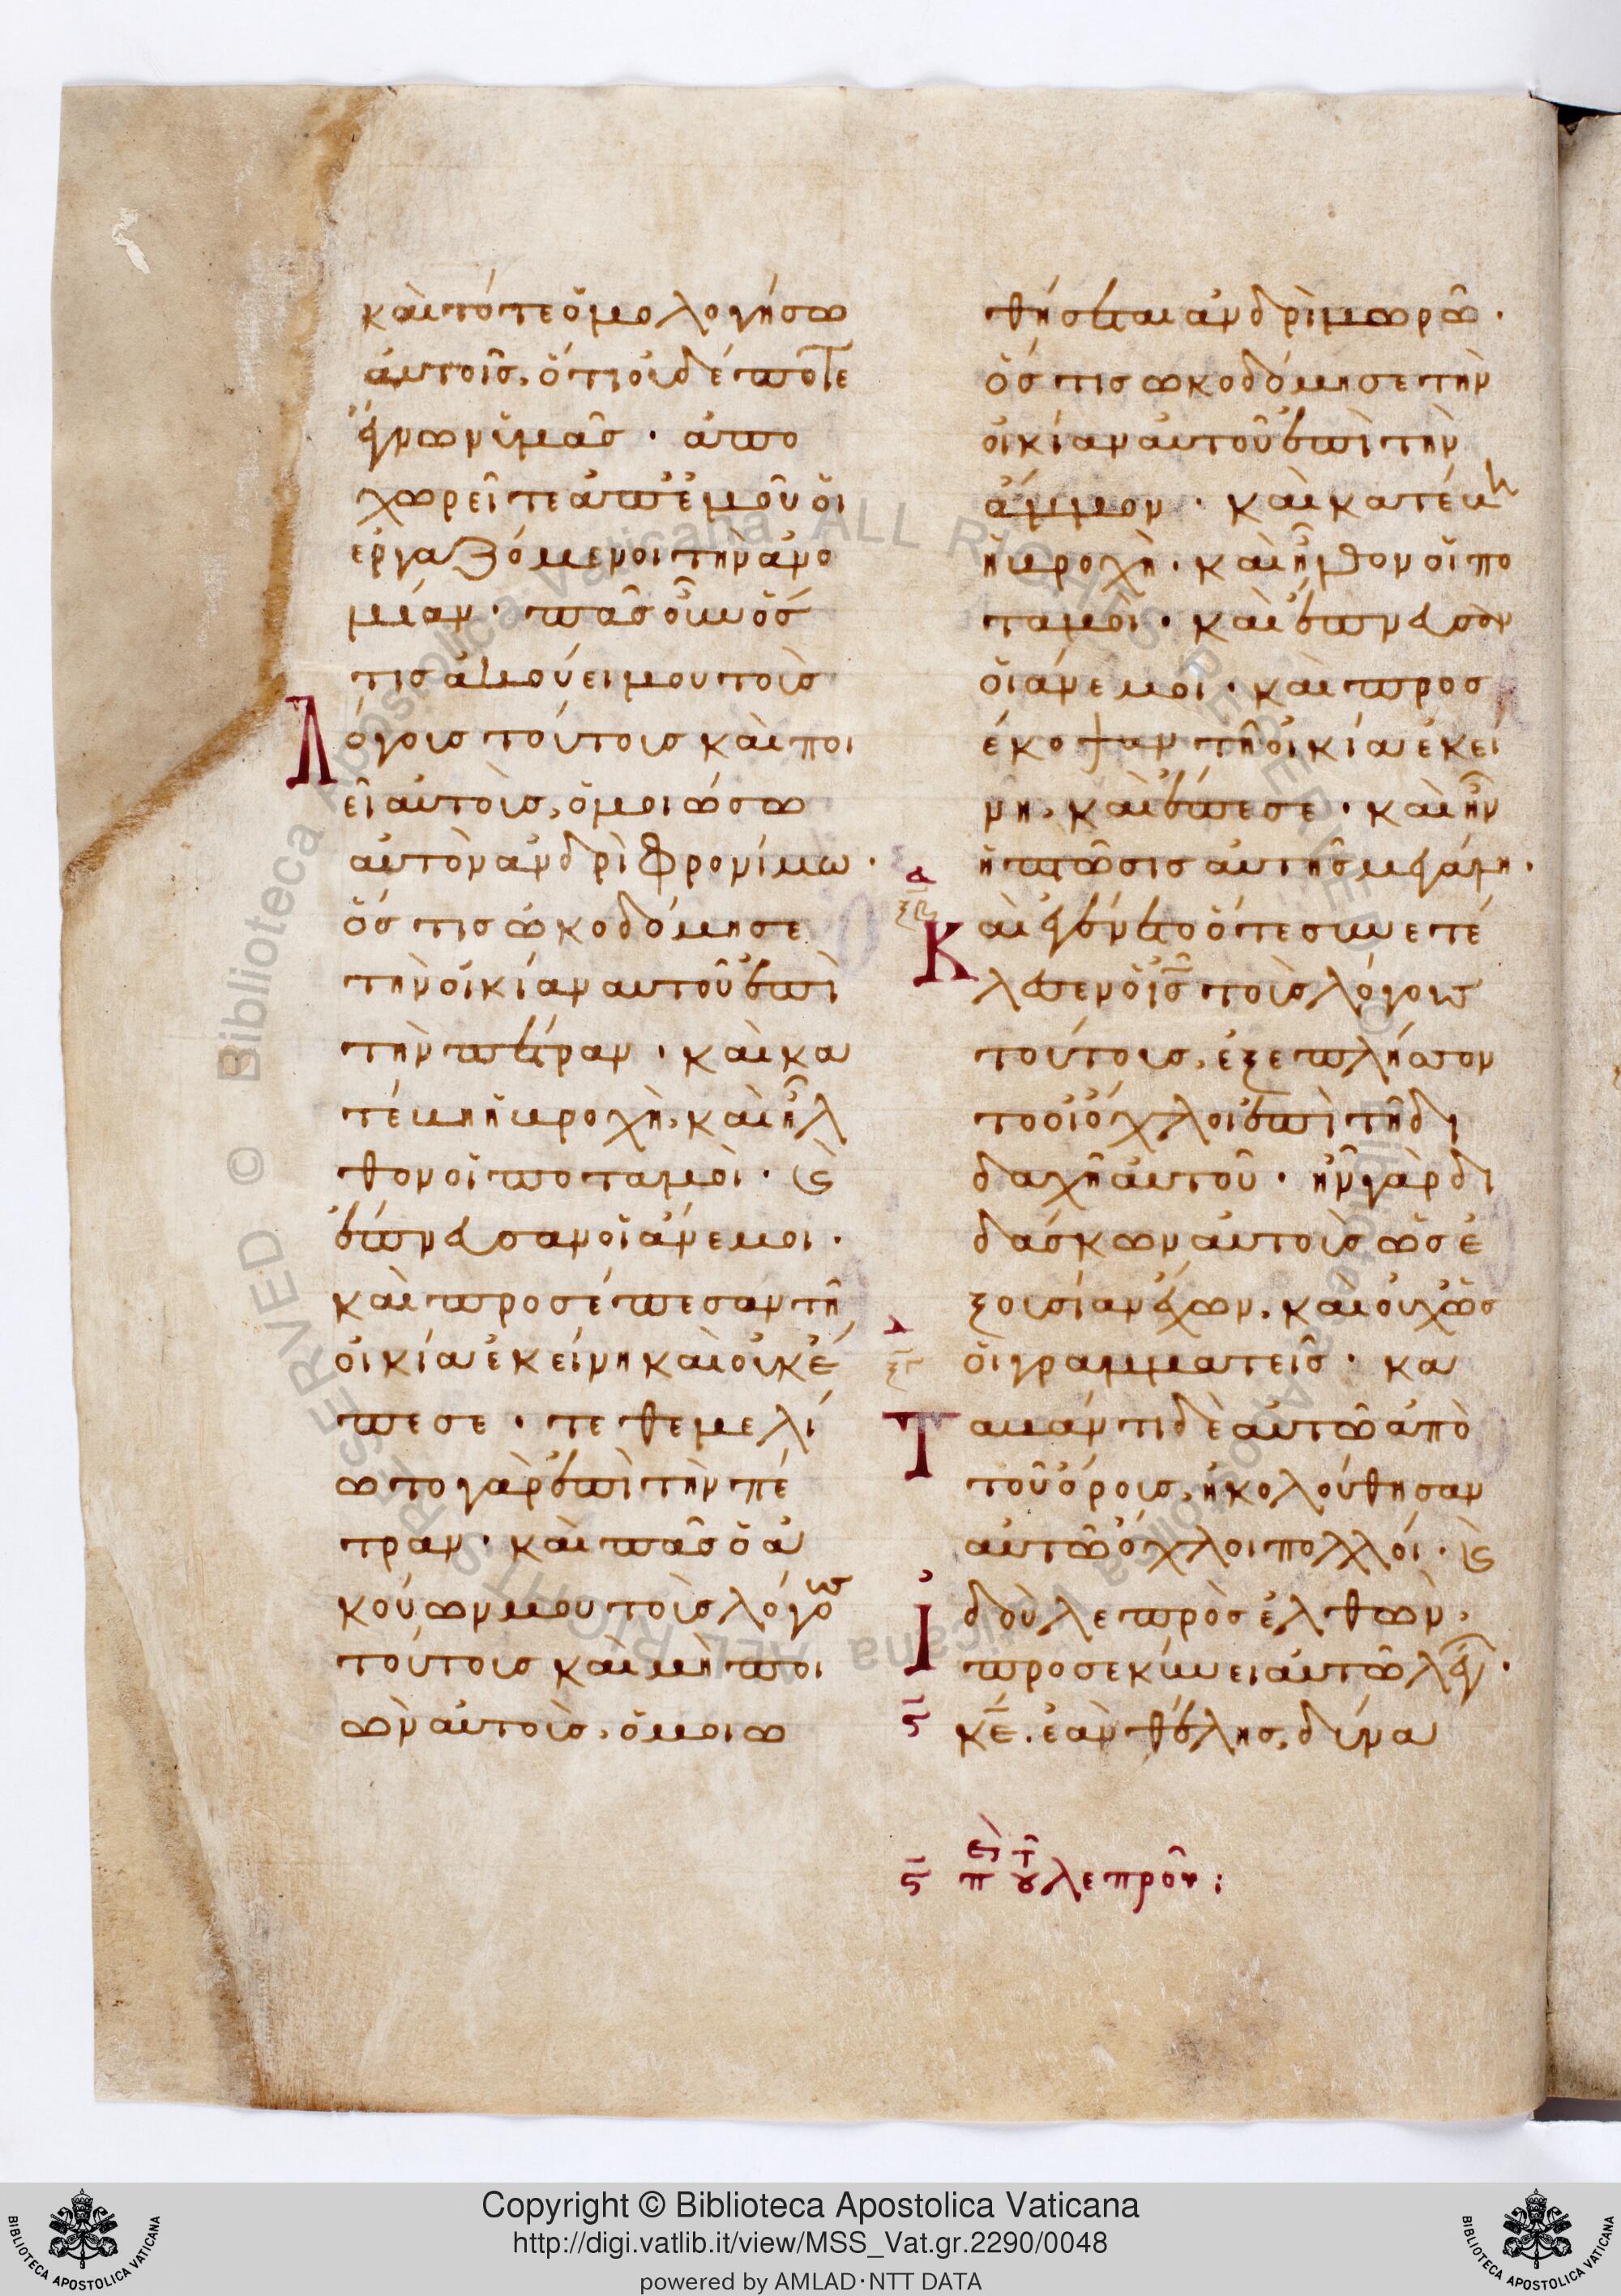 καὶ τότε ὁμολογήσω
αὐτοῖς, ὅτι οὐδέποτε
ἔγνων ὑμᾶς · ἀπο
χωρεῖτε ἀπ' ἐμοῦ οἱ
ἐργαζόμενοι τὴν ἀνο
μίαν · πᾶς οὖν ὅς
τις ἀκούει μου τοὺς
Λόγους τούτους καὶ ποι
εῖ αὐτοὺς, ὁμοιώσω
αὐτὸν ἀνδρὶ φρονίμω ·
ὅς τις ὠκοδόμησε
τὴν οἰκίαν αὐτοῦ ἐπὶ
τὴν πέτραν · καὶ κα
τέβη ἡ βροχὴ, καὶ ἦλ
θον οἱ ποταμοὶ · ϗ
ἔπνευσαν οἱ ἄνεμοι ·
καὶ προσέπεσαν τῆ
οἰκία ἐκείνη καὶ οὐκ ἔ
πεσε · τεθεμελί
ωτο γὰρ ἐπὶ τὴν πέ
τραν · καὶ πᾶς ὁ ἀ
κούων μου τοὺς λόγους
τούτους καὶ μὴ ποι
ῶν αὐτοὺς, ὁμοιω
θήσεται ἀνδρὶ μωρῶ ·
ὅς τις ὠκοδόμησε τὴν
οἰκίαν αὐτοῦ ἐπὶ τὴν
ἄμμον · καὶ κατέβη
ἡ βροχὴ · καὶ ἦλθον οἱ πο
ταμοὶ · καὶ ἔπνευσαν
οἱ ἄνεμοι · καὶ προσ
έκοψαν τῆ οἰκία ἐκεί
νη, καὶ ἔπεσε · καὶ ἦν
ἡ πτῶσις αὐτῆς μεγάλη ·
Καὶ ἐγένετο ὅτε συνετέ
λεσεν ὁ ις τοὺς λόγους
τούτους, ἐξεπλήσσον
το οἱ ὄχλοι ἐπὶ τῆ δι
δαχῆ αὐτοῦ · ἦν γὰρ δι
δάσκων αὐτοὺς ὡς ἐ
ξουσίαν ἔχων, καὶ οὐχ ὡς
οἱ γραμματεῖς · κα
Ταβάντι δὲ αὐτῶ ἀπὸ
τοῦ ὄρους, ἠκολούθησαν
αὐτῶ ὄχλοι πολλοί · ϗ
Ἰδοὺ λεπρὸς ἐλθὼν,
προσεκύνει αὐτῶ λέγων ·
κε, ἐὰν θέλης, δύνα
ϛ περὶ τοῦ λεπροῦ :